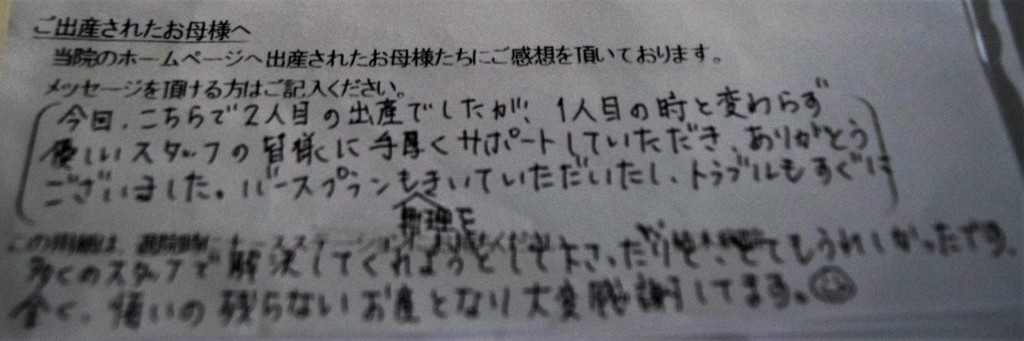 ご出産されたお母様へ
当院のホームページへ出産されたお母様たちにご感想を頂いております。
メッセージを頂ける方はご記入ください。
今回、こちらで2人目の出産でしたが、1人目の時と変わらず
優しいスタッフの皆様に手厚くサポートしていただき、ありがとう
ございました。バースプランもきいていただいたし、トラブルもすぐに
無理を
この用紙は、退院時にナースステーション
多くのスタッフで解決してくれようとして下さったり
とてもうれしかったです。
全く、悔いの残らないお産となり大変感謝してます。